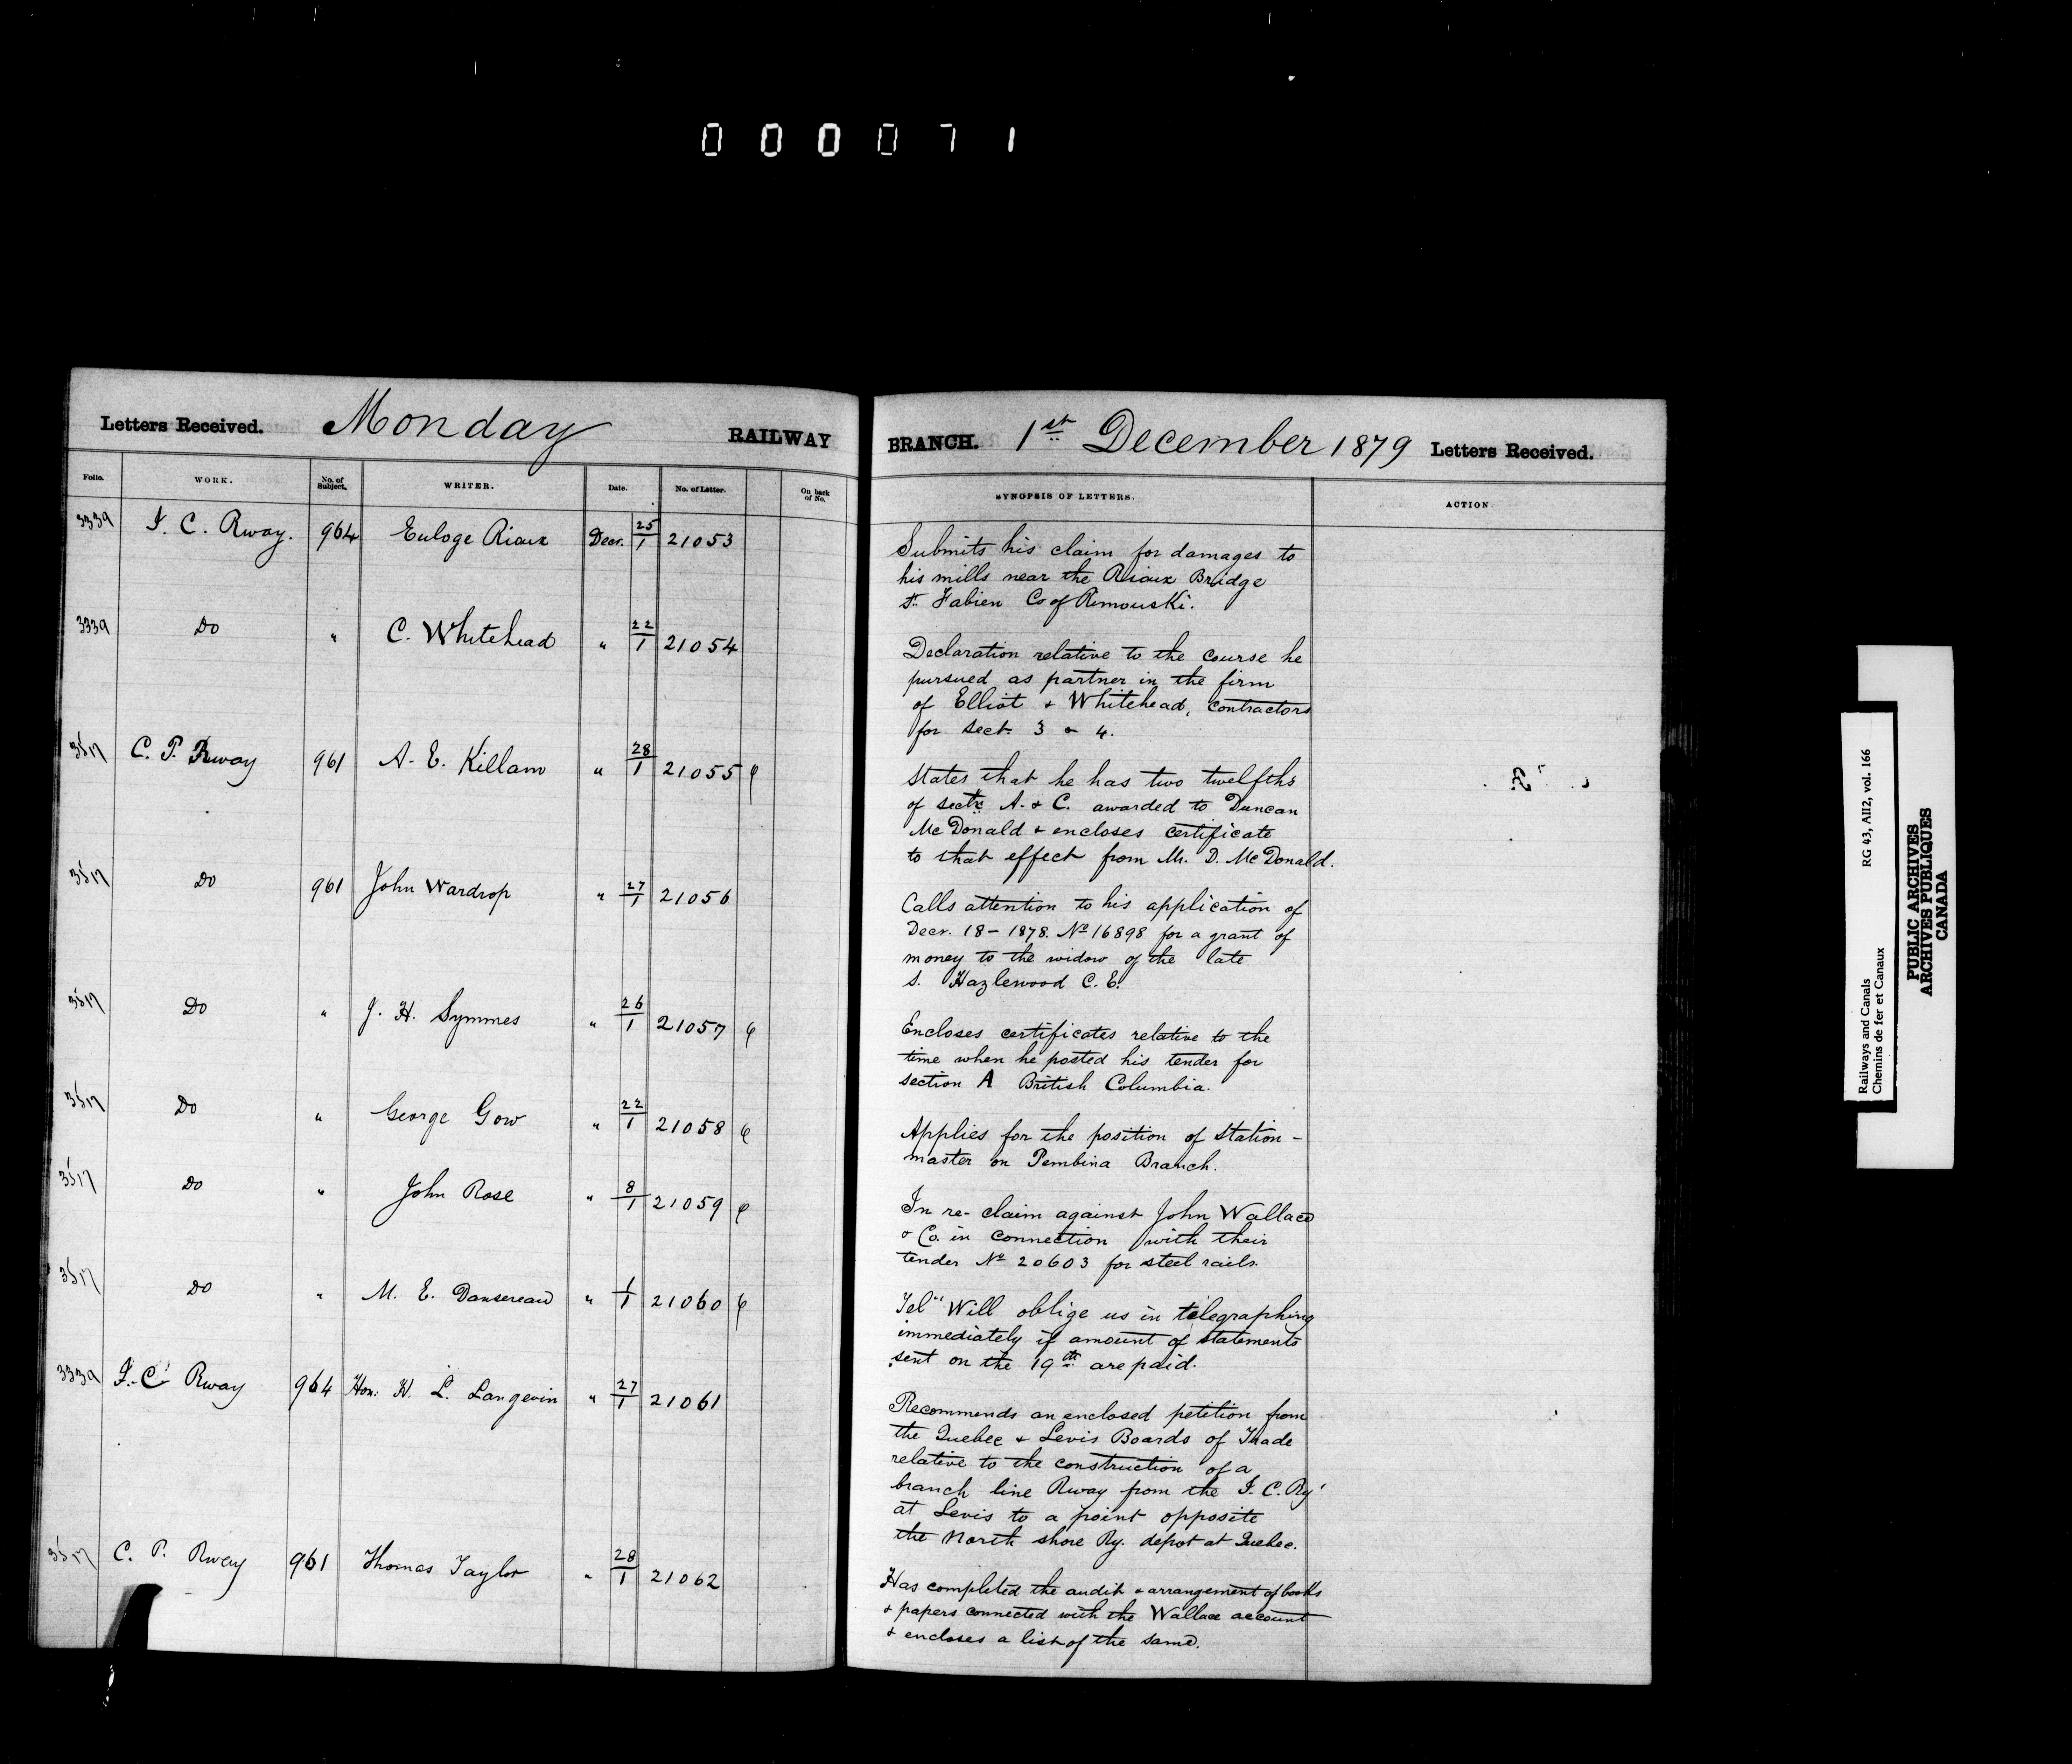 000071
Letters Received. Monday RAILWAY
Folio. WORK. No. of Subject. WRITER. Date. No. of Letter. On back of No.
3339 I. C. Rway. 964 Euloge Rioux Decr. 25/1 21053
3339 Do " C. Whitehead " 22/1 21054
3517 C. P. Rway 961 A. E. Killam " 28/1 21055
3517 Do 961 John Wardrop " 27/1 21056
3517 Do " J. H. Symmes " 26/1 21057
3517 Do " George Gow " 22/1 21058
3517 Do " John Rose " 8/1 21059
3517 Do " M. E. Dansereau " 1/1 21060
3339 I. C. Rway 964 Hon. H. L. Langevin " 27/1 21061
3517 C. P. Rway 961 Thomas Taylor " 28/1 21062
BRANCH. 1st December 1879 Letters Received.
SYNOPSIS OF LETTERS. ACTION.
Submits his claim for damages to
his mills near the Rioux Bridge
St. Fabien Co of Rimouski.
Declaration relative to the course he
pursued as partner in the firm
of Elliot & Whitehead, contractors
for sect. 3 & 4.
States that he has two twelfths
of sectn. A. & C. awarded to Duncan
McDonald & encloses certificate
to that effect from Mr. D. McDonald.
Calls attention to his application of
Decr. 18 - 1878. No 16898 for a grant of
money to the widow of the late
S. Hazlewood C. E.
Encloses certificates relative to the
time when he posted his tender for
section A British Columbia.
Applies for the position of Station-
master on Pembina Branch.
In re- claim against John Wallace
& Co. in connection with their
tender No 20603 for steel rails.
Tel "Will oblige us in telegraphing
immediately if amount of statements
sent on the 19th are paid.
Recommends an enclosed petition from
the Quebec & Levis Boards of Trade
relative to the construction of a
branch line Rway from the I. C. Ry
at Levis to a point opposite
the North shore Ry. depot at Quebec.
Has completed the audit & arrangement of books
& papers connected with the Wallace account
& encloses a list of the same.
Railways and Canals RG 43, AII2, vol. 166
Chemins de fer et Canaux
PUBLIC ARCHIVES
ARCHIVES PUBLIQUES
CANADA